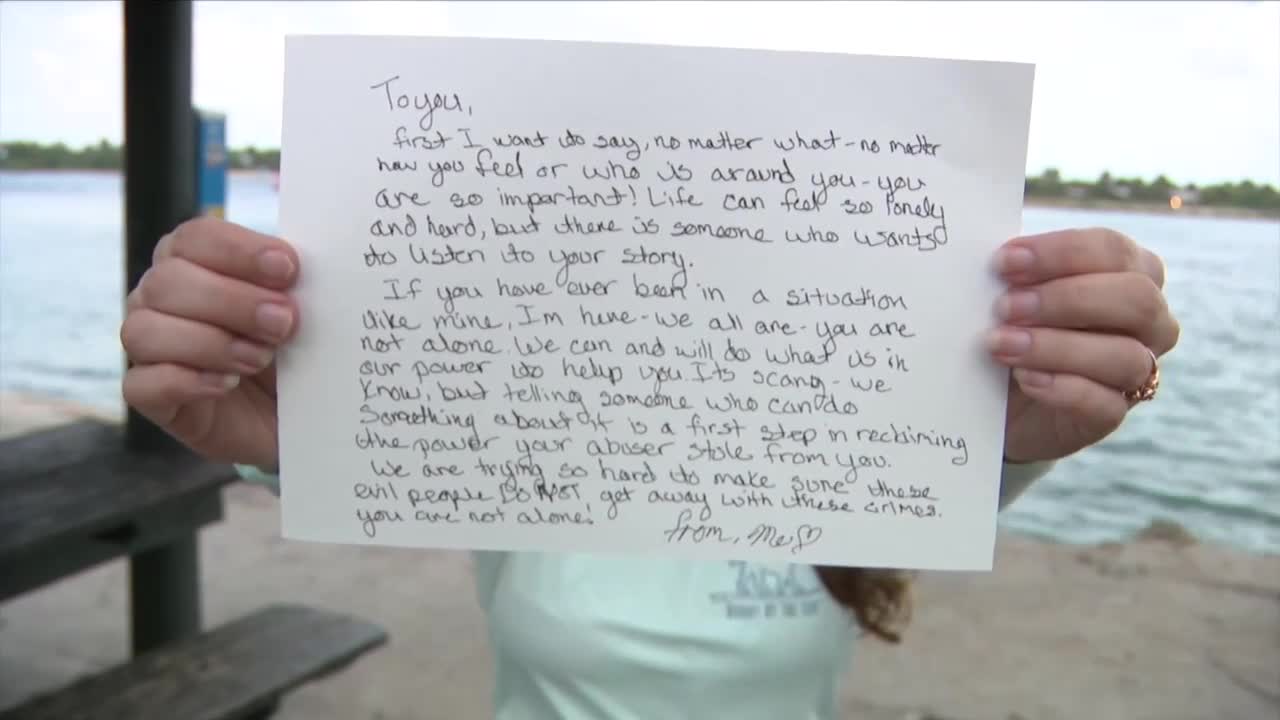 To you,
first I want to say, no matter what - no matter
how you feel or who is around you - you
are so important! Life can feel so lonely
and hard, but there is someone who wants
to listen to your story.
If you have ever been in a situation
like mine, Im here - we all are - you are
not alone. We can and will do what is in
our power to help you. Its scary - we
know, but telling someone who can do
something about it is a first step in reclaiming
the power your abuser stole from you.
We are trying so hard to make sure these
evil people DO NOT get away with these crimes.
you are not alone!
from, Me ♡